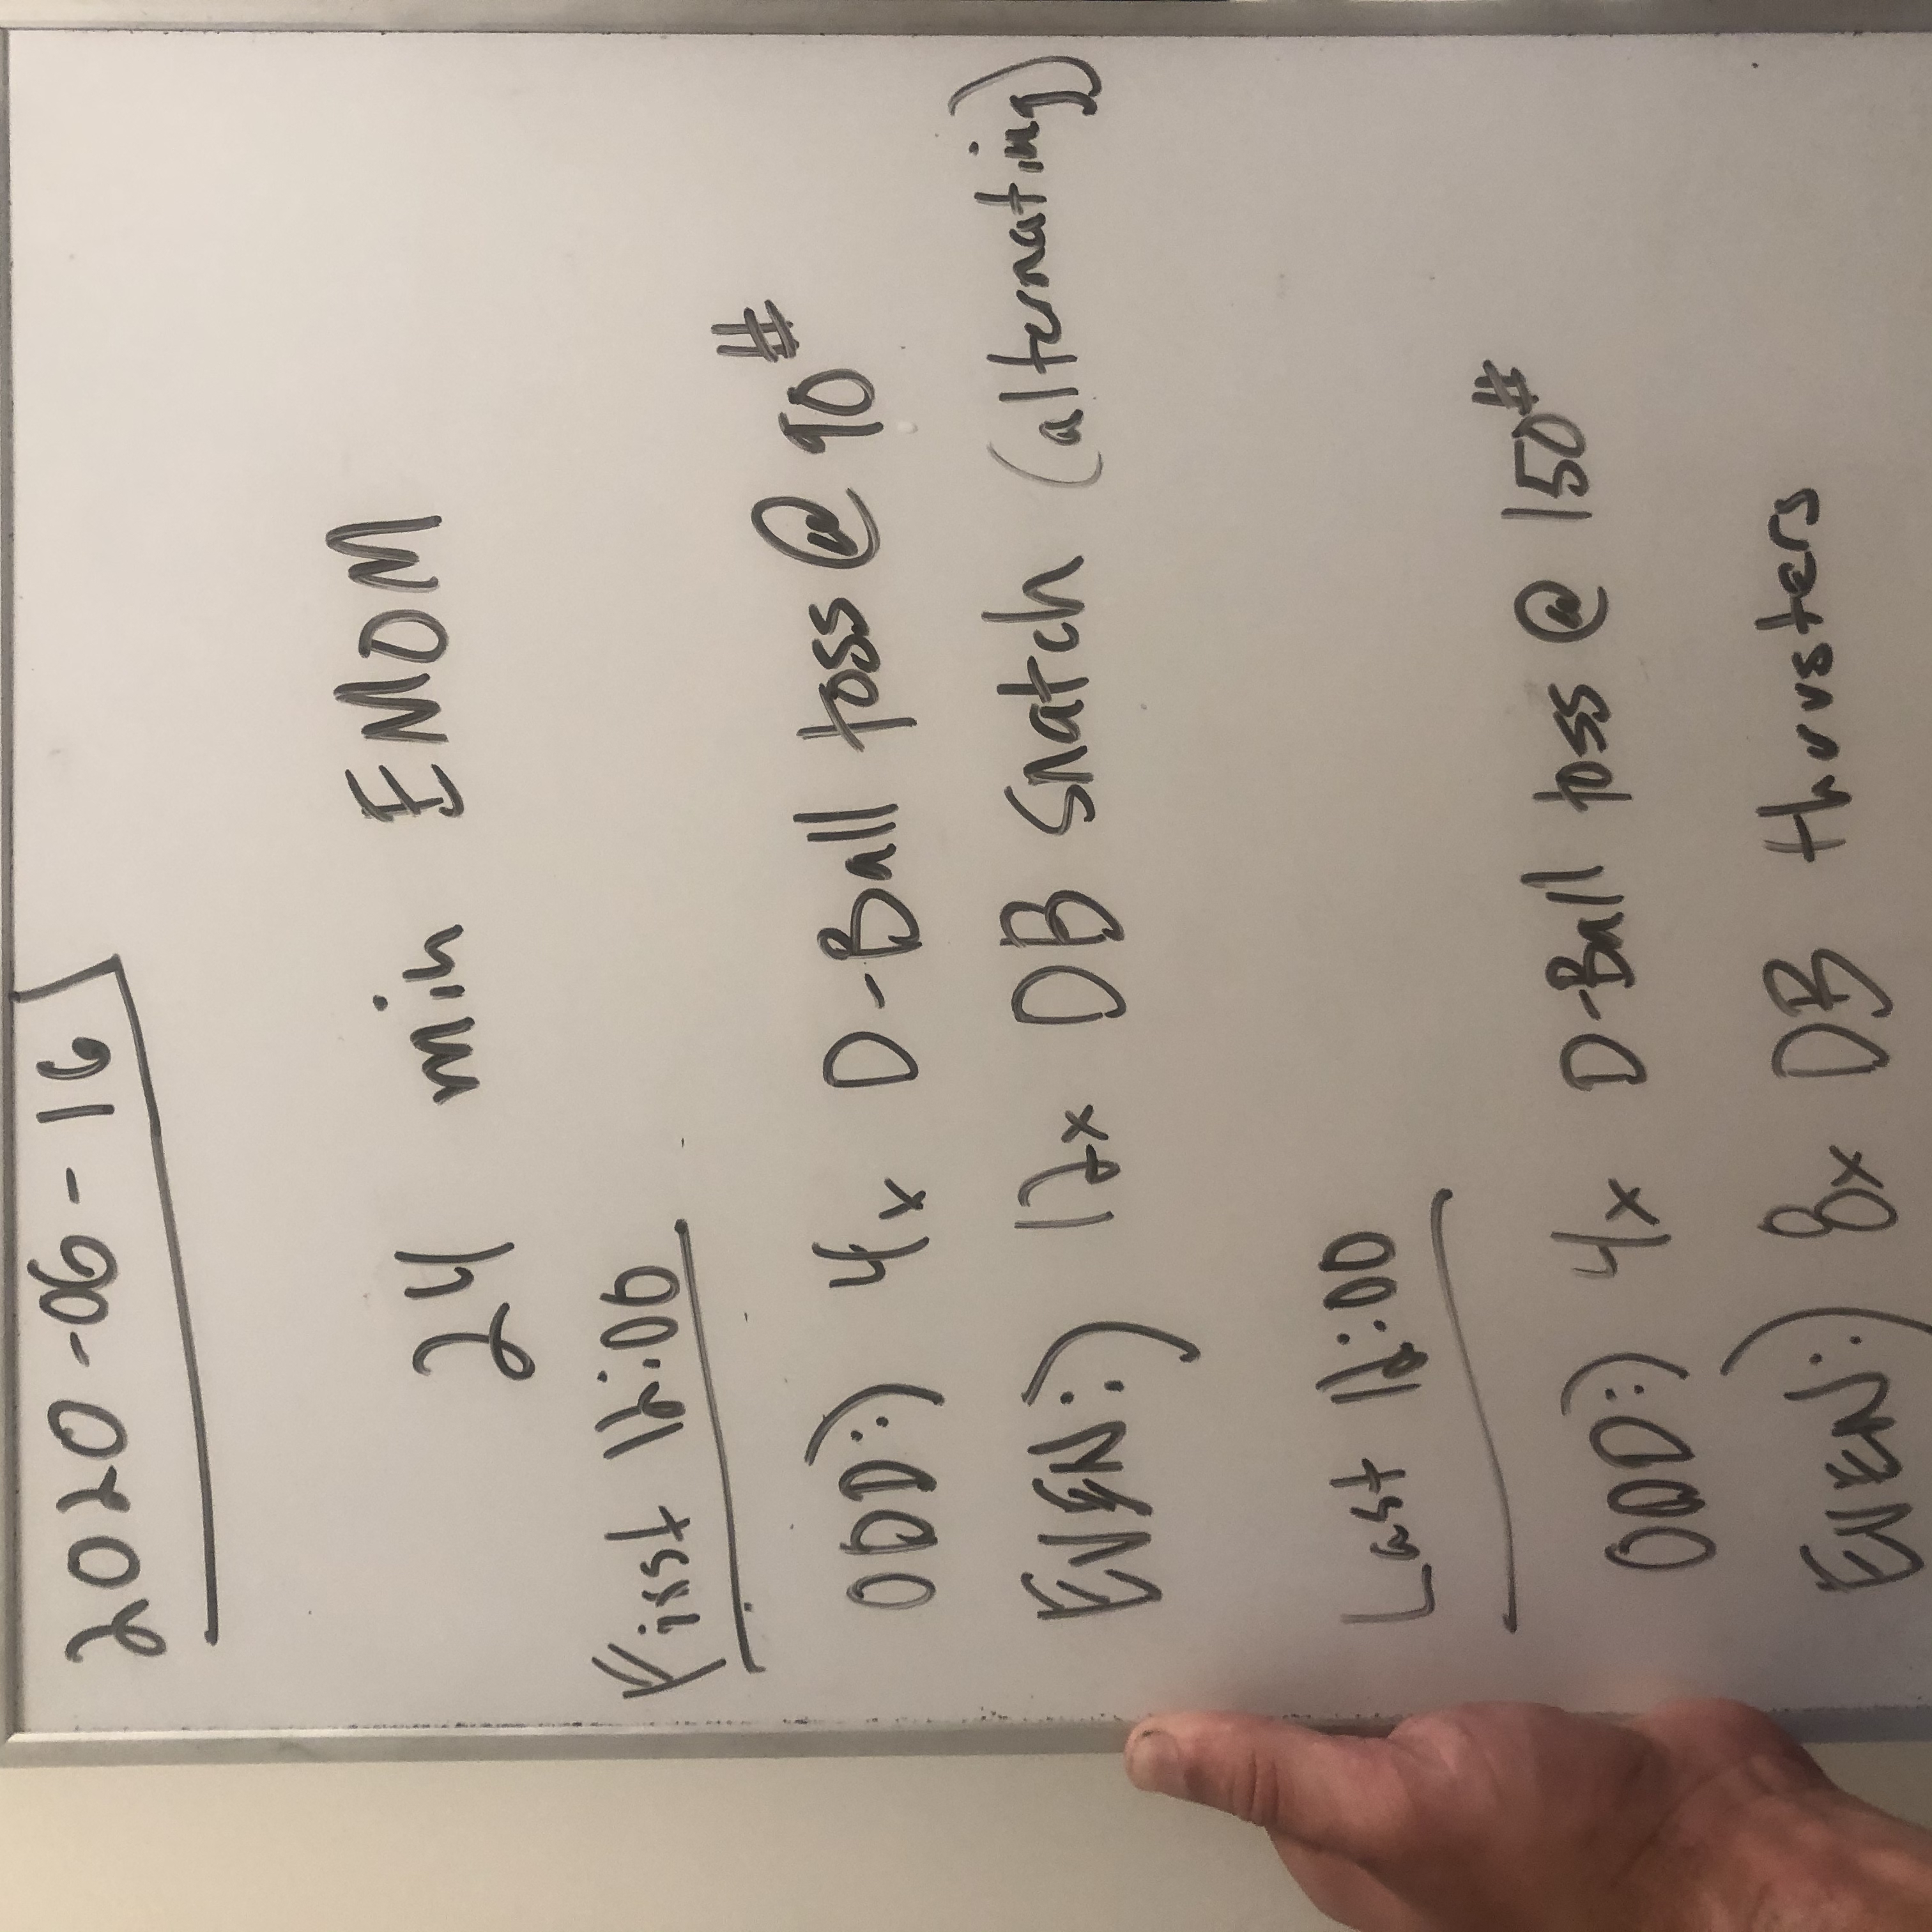 2020-06-16
24 min EMOM
First 12:00
ODD:) 4x D-Ball toss @ 90#
EVEN:) 12x DB snatch (alternating)
Last 12:00
ODD:) 4x D-Ball toss @ 150#
EVEN:) 8x DB thrusters